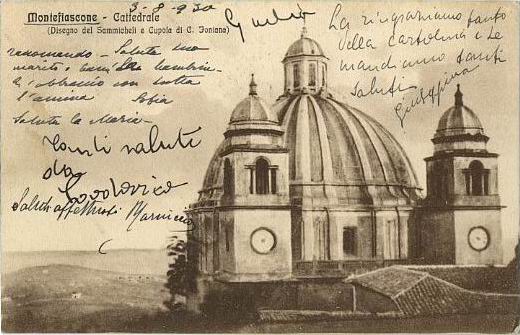 Montefiascone - Cattedrale
(Disegno del Sammicheli e Cupola di C. Fontana)
3-8-930
Giulia
La ringraziamo tanto
della cartolina e le
mandiamo tanti
saluti
Giuseppina
raccomando - Saluta suo
marito e bambine
l'abbraccio con tutta
l'anima Sofia
Saluta la Maria -
Tanti saluti
da
Lodovico
Saluti affettuosi